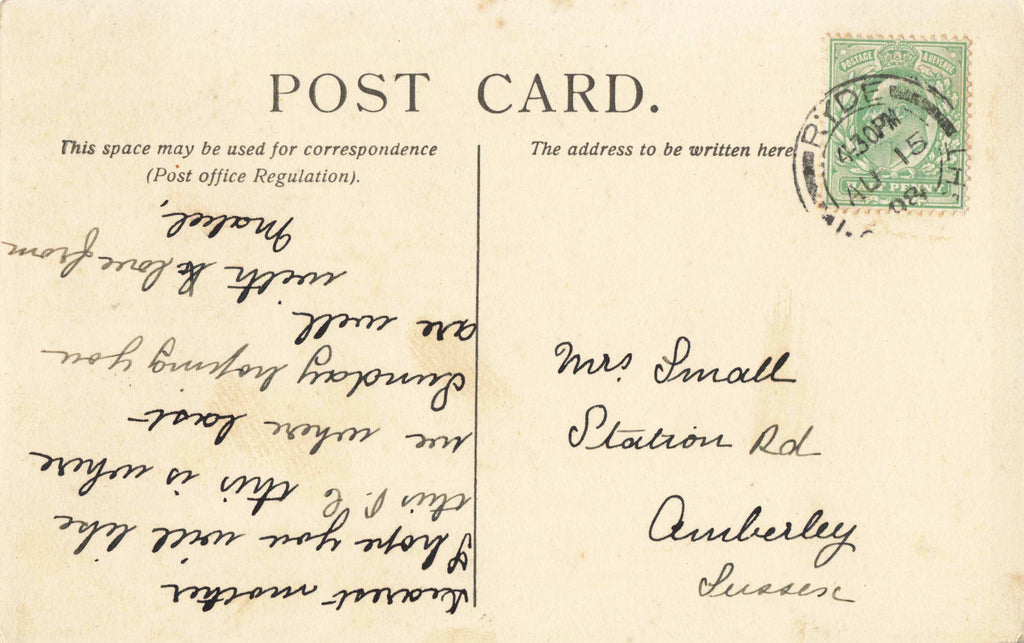 POST CARD.
This space may be used for correspondence
(Post office Regulation).
The address to be written here
POSTAGE REVENUE
RYDE
4.30PM
AU 15
08
PENNY
Dearest mother
I hope you will like
this P.C this is where
we where last
Sunday hoping you
are well
with love from
Mabel,
Mrs Small
Station Rd
Amberley
Sussex